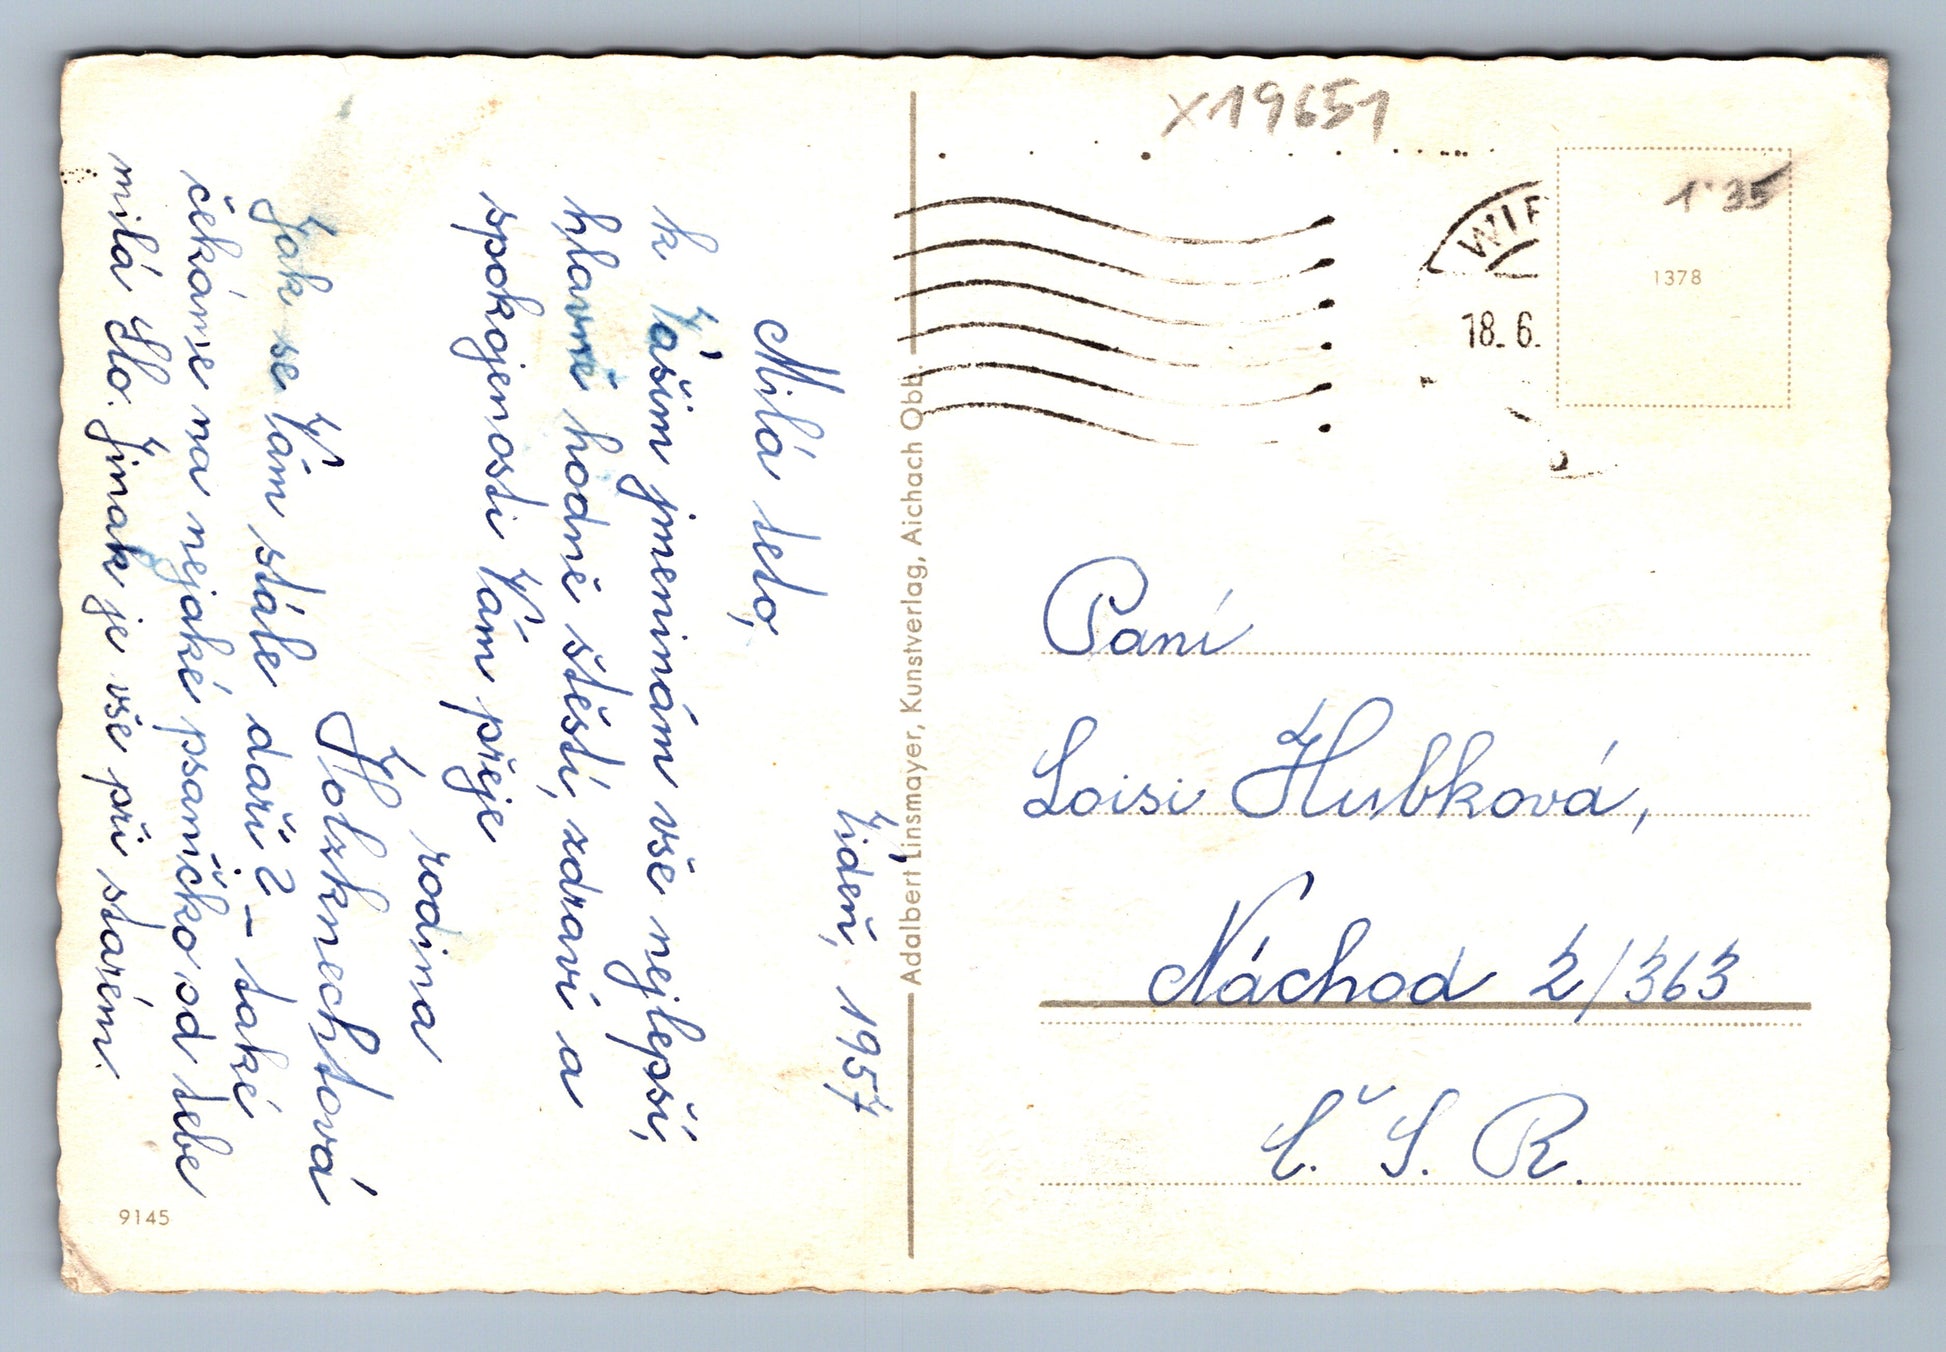 Vídeň, 1957
Milá teto,
k Vašim jmeninám vše nejlepší,
hlavně hodně štěstí, zdraví a
spokojenosti Vám přeje
rodina
Holzknechtová
Jak se Vám stále daří? – také
čekáme na nejaké psaníčko od tebe
milá Slo. Jinak je vše při starém.
9145
Adalbert Linsmayer, Kunstverlag, Aichach Obb.
x19651
WIE
18. 6.
1'35
1378
Paní
Loisi Hubková,
Náchod 2/363
Č. S. R.